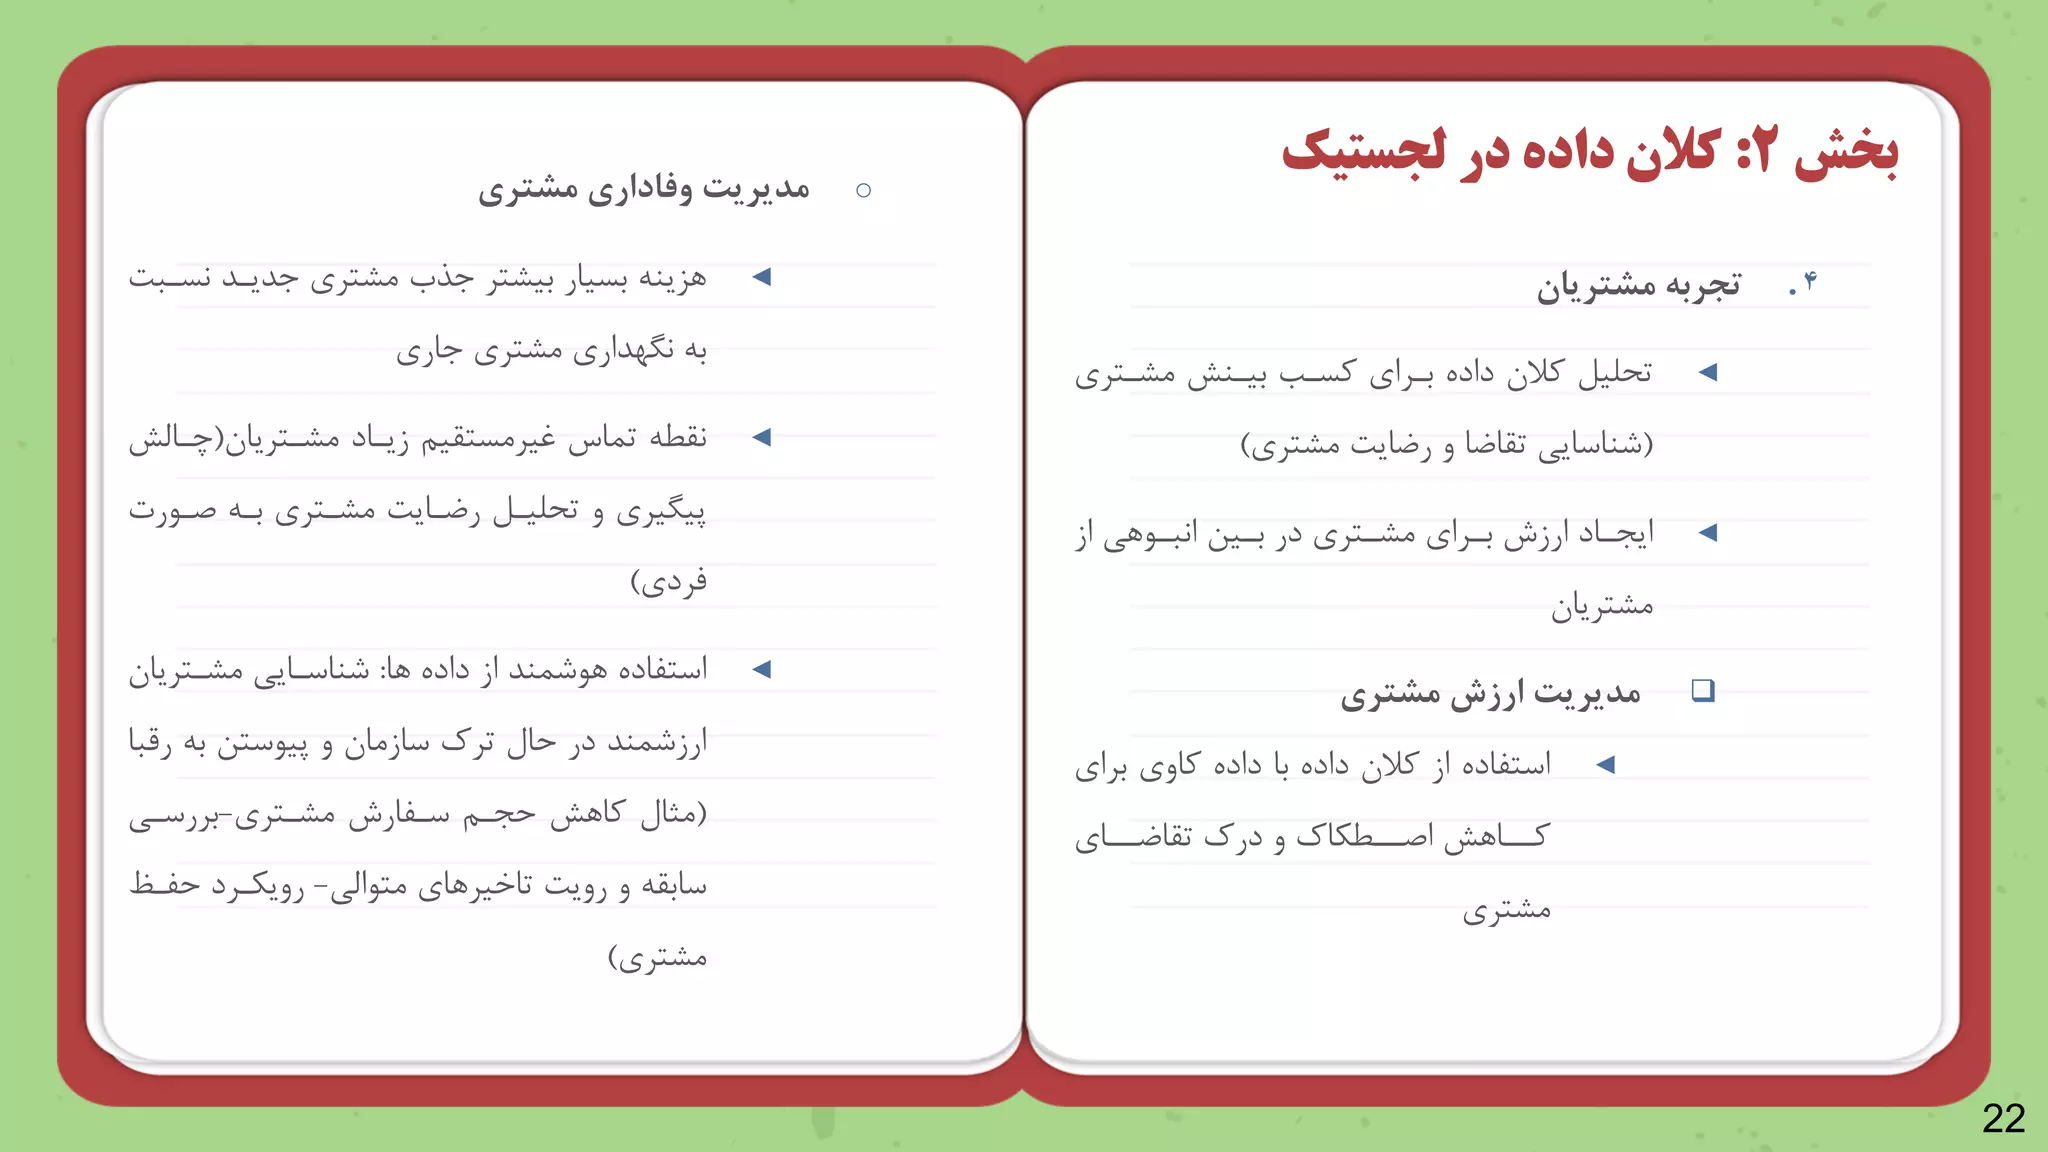 بخش ۲: کلان داده در لجستیک
۴. تجربه مشتریان
◄ تحلیل کلان داده برای کسب بینش مشتری
(شناسایی تقاضا و رضایت مشتری)
◄ ایجاد ارزش برای مشتری در بین انبوهی از
مشتریان
❑ مدیریت ارزش مشتری
◄ استفاده از کلان داده با داده کاوی برای
کاهش اصطکاک و درک تقاضای
مشتری
o مدیریت وفاداری مشتری
◄ هزینه بسیار بیشتر جذب مشتری جدید نسبت
به نگهداری مشتری جاری
◄ نقطه تماس غیرمستقیم زیاد مشتریان(چالش
پیگیری و تحلیل رضایت مشتری به صورت
فردی)
◄ استفاده هوشمند از داده ها: شناسایی مشتریان
ارزشمند در حال ترک سازمان و پیوستن به رقبا
(مثال کاهش حجم سفارش مشتری-بررسی
سابقه و رویت تاخیرهای متوالی- رویکرد حفظ
مشتری)
22